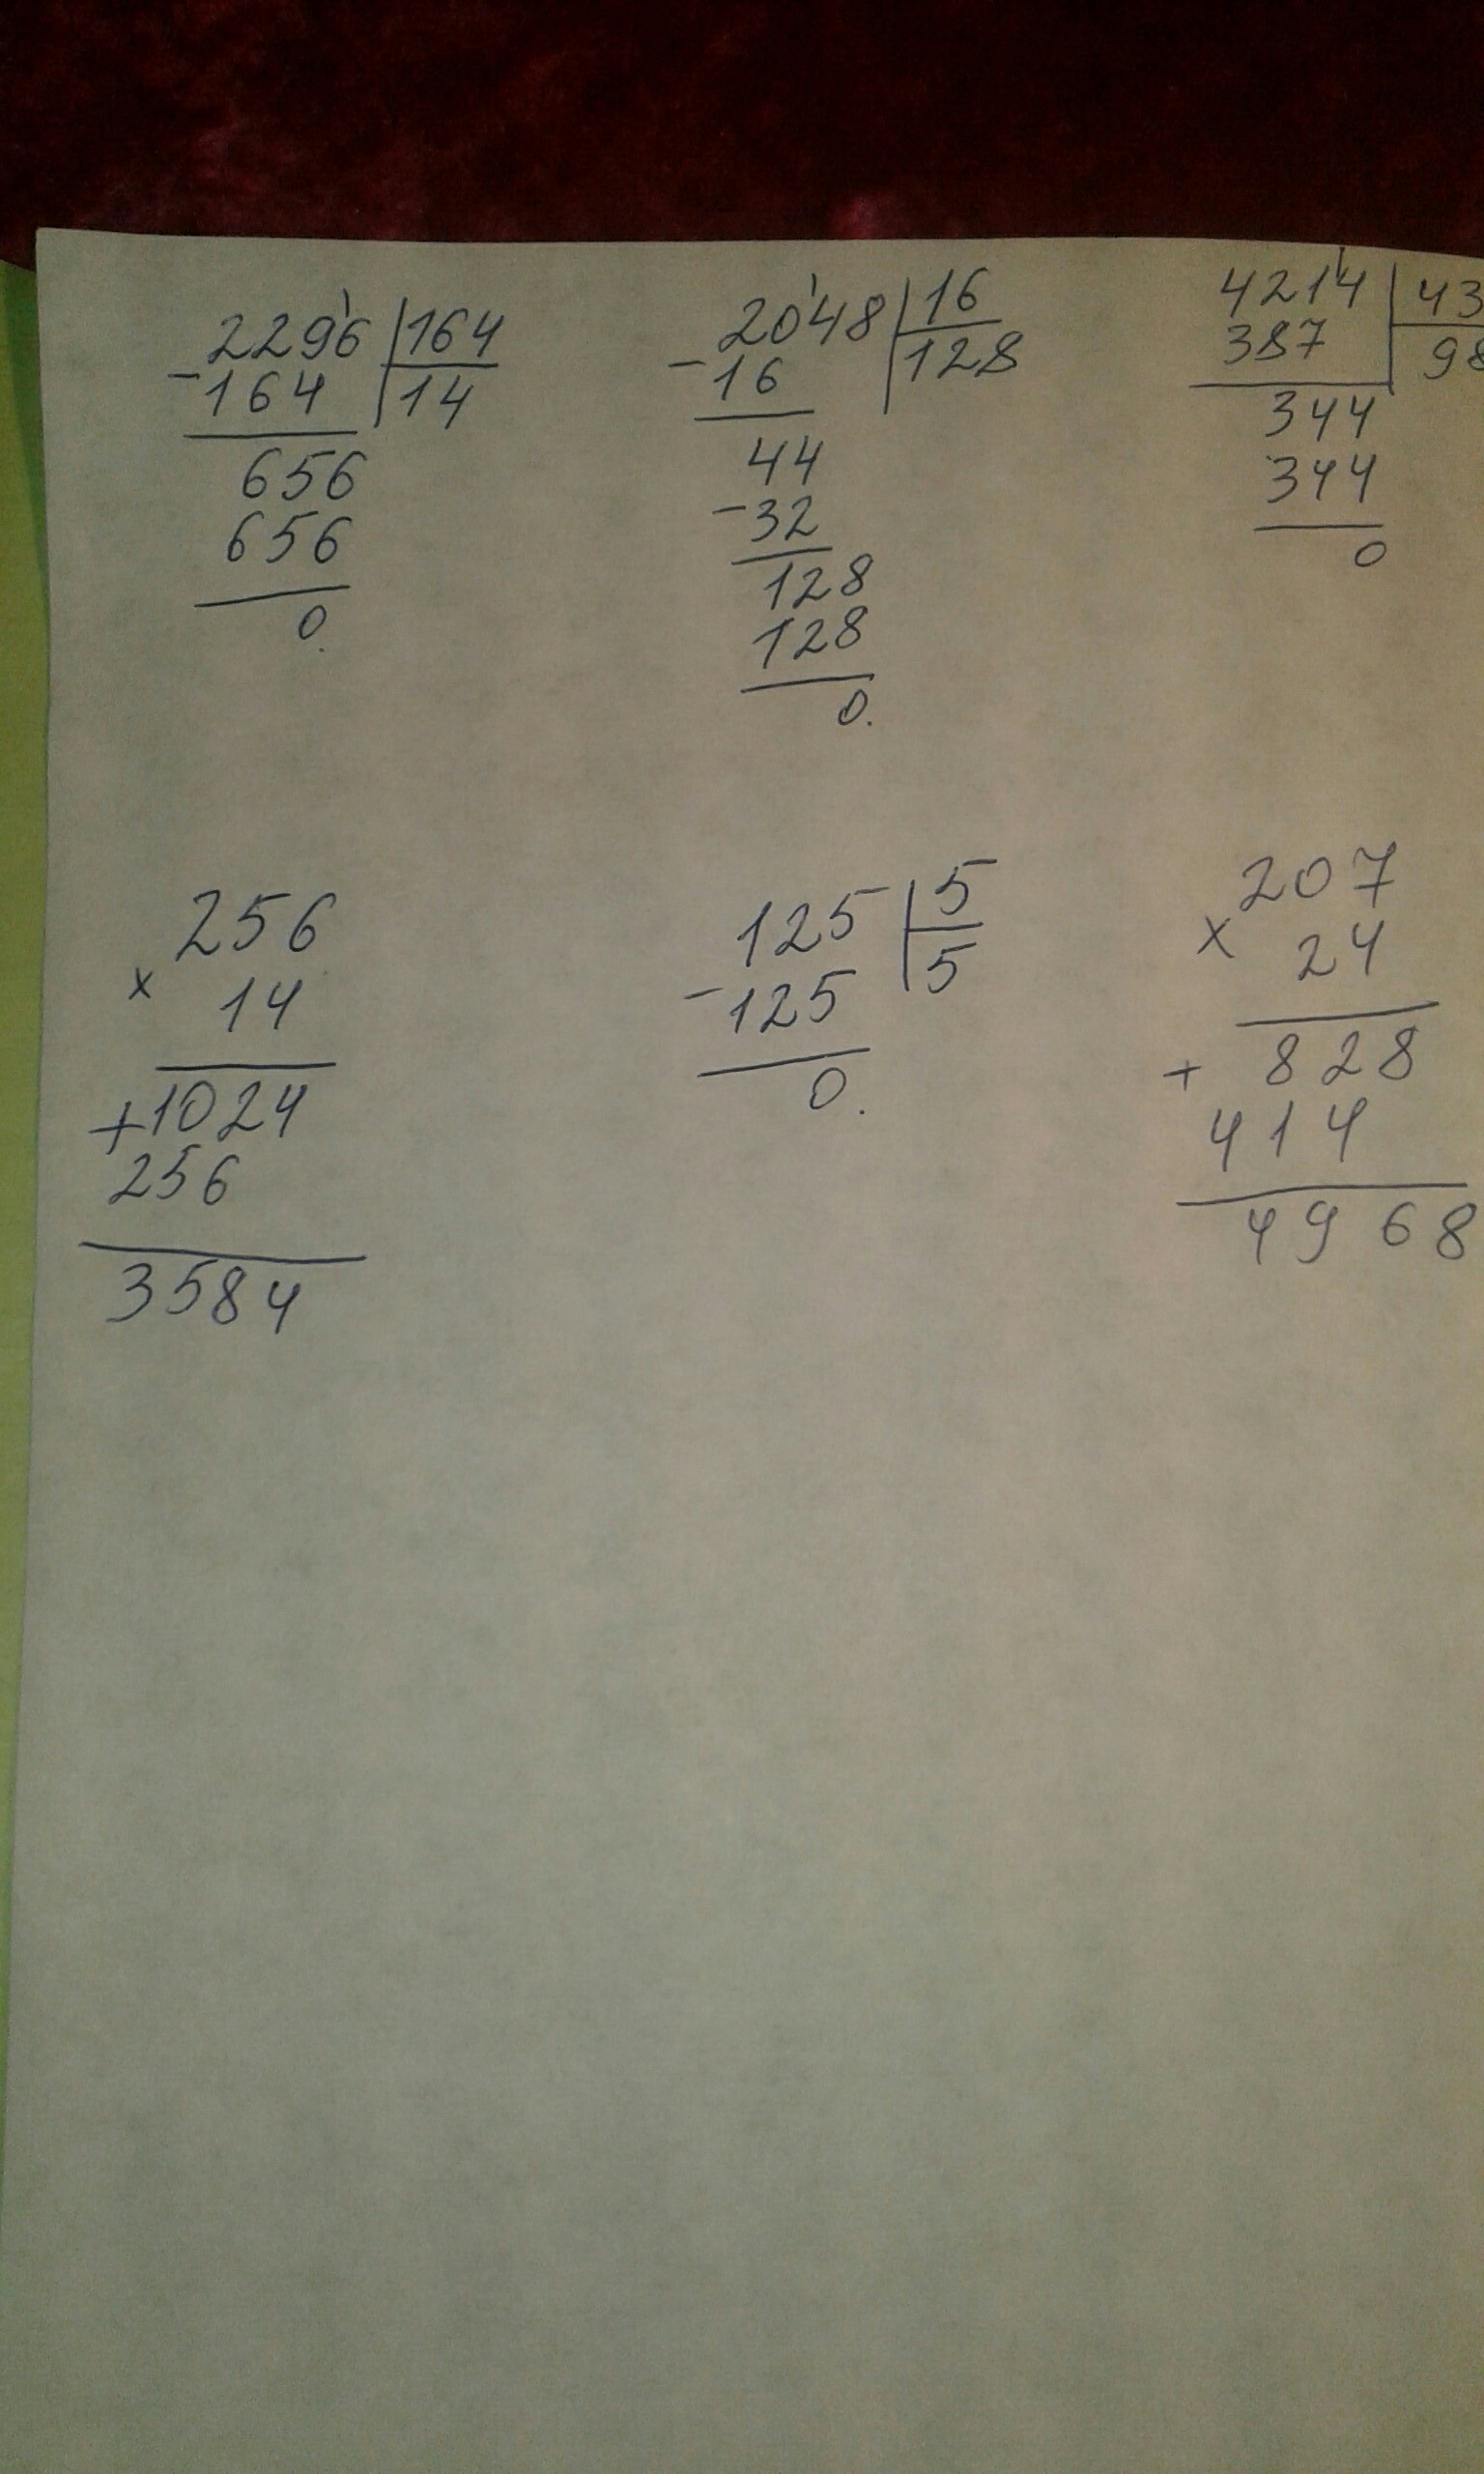 2296 | 164
- 164 | 14
656
656
0.
2048 | 16
- 16 | 128
44
- 32
128
128
0.
4214 | 43
387 | 98
344
344
0
256
x 14
+ 1024
256
3584
125 | 5
- 125 | 5
0.
207
x 24
+ 828
414
4968